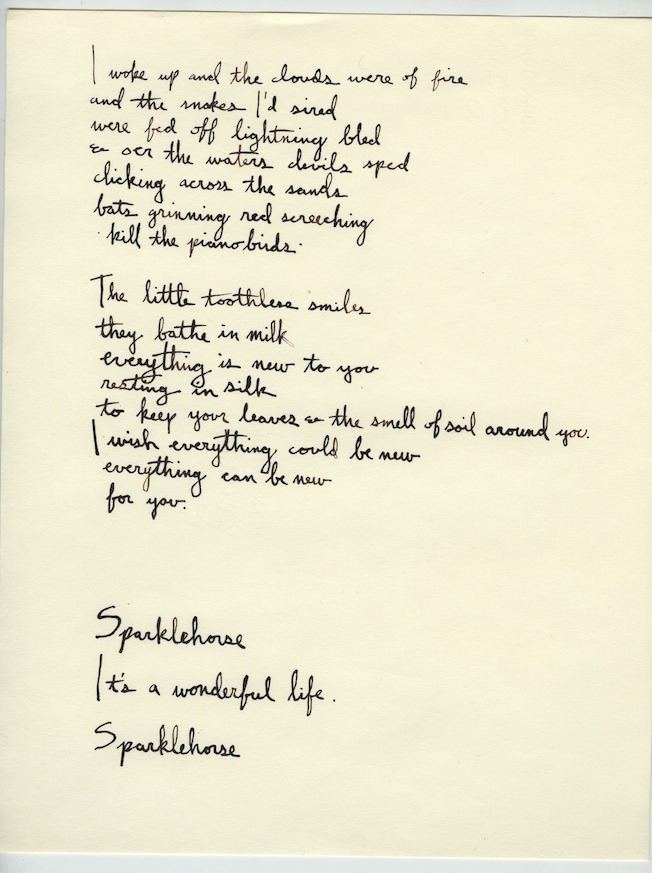 I woke up and the clouds were of fire
and the snakes I'd sired
were fed off lightning bled
& oer the waters devils sped
clicking across the sands
bats grinning red screeching
kill the pianobirds.
The little toothless smiles
they bathe in milk
everything is new to you
resting in silk
to keep your leaves & the smell of soil around you.
I wish everything could be new
everything can be new
for you.
Sparklehorse
It's a wonderful life.
Sparklehorse